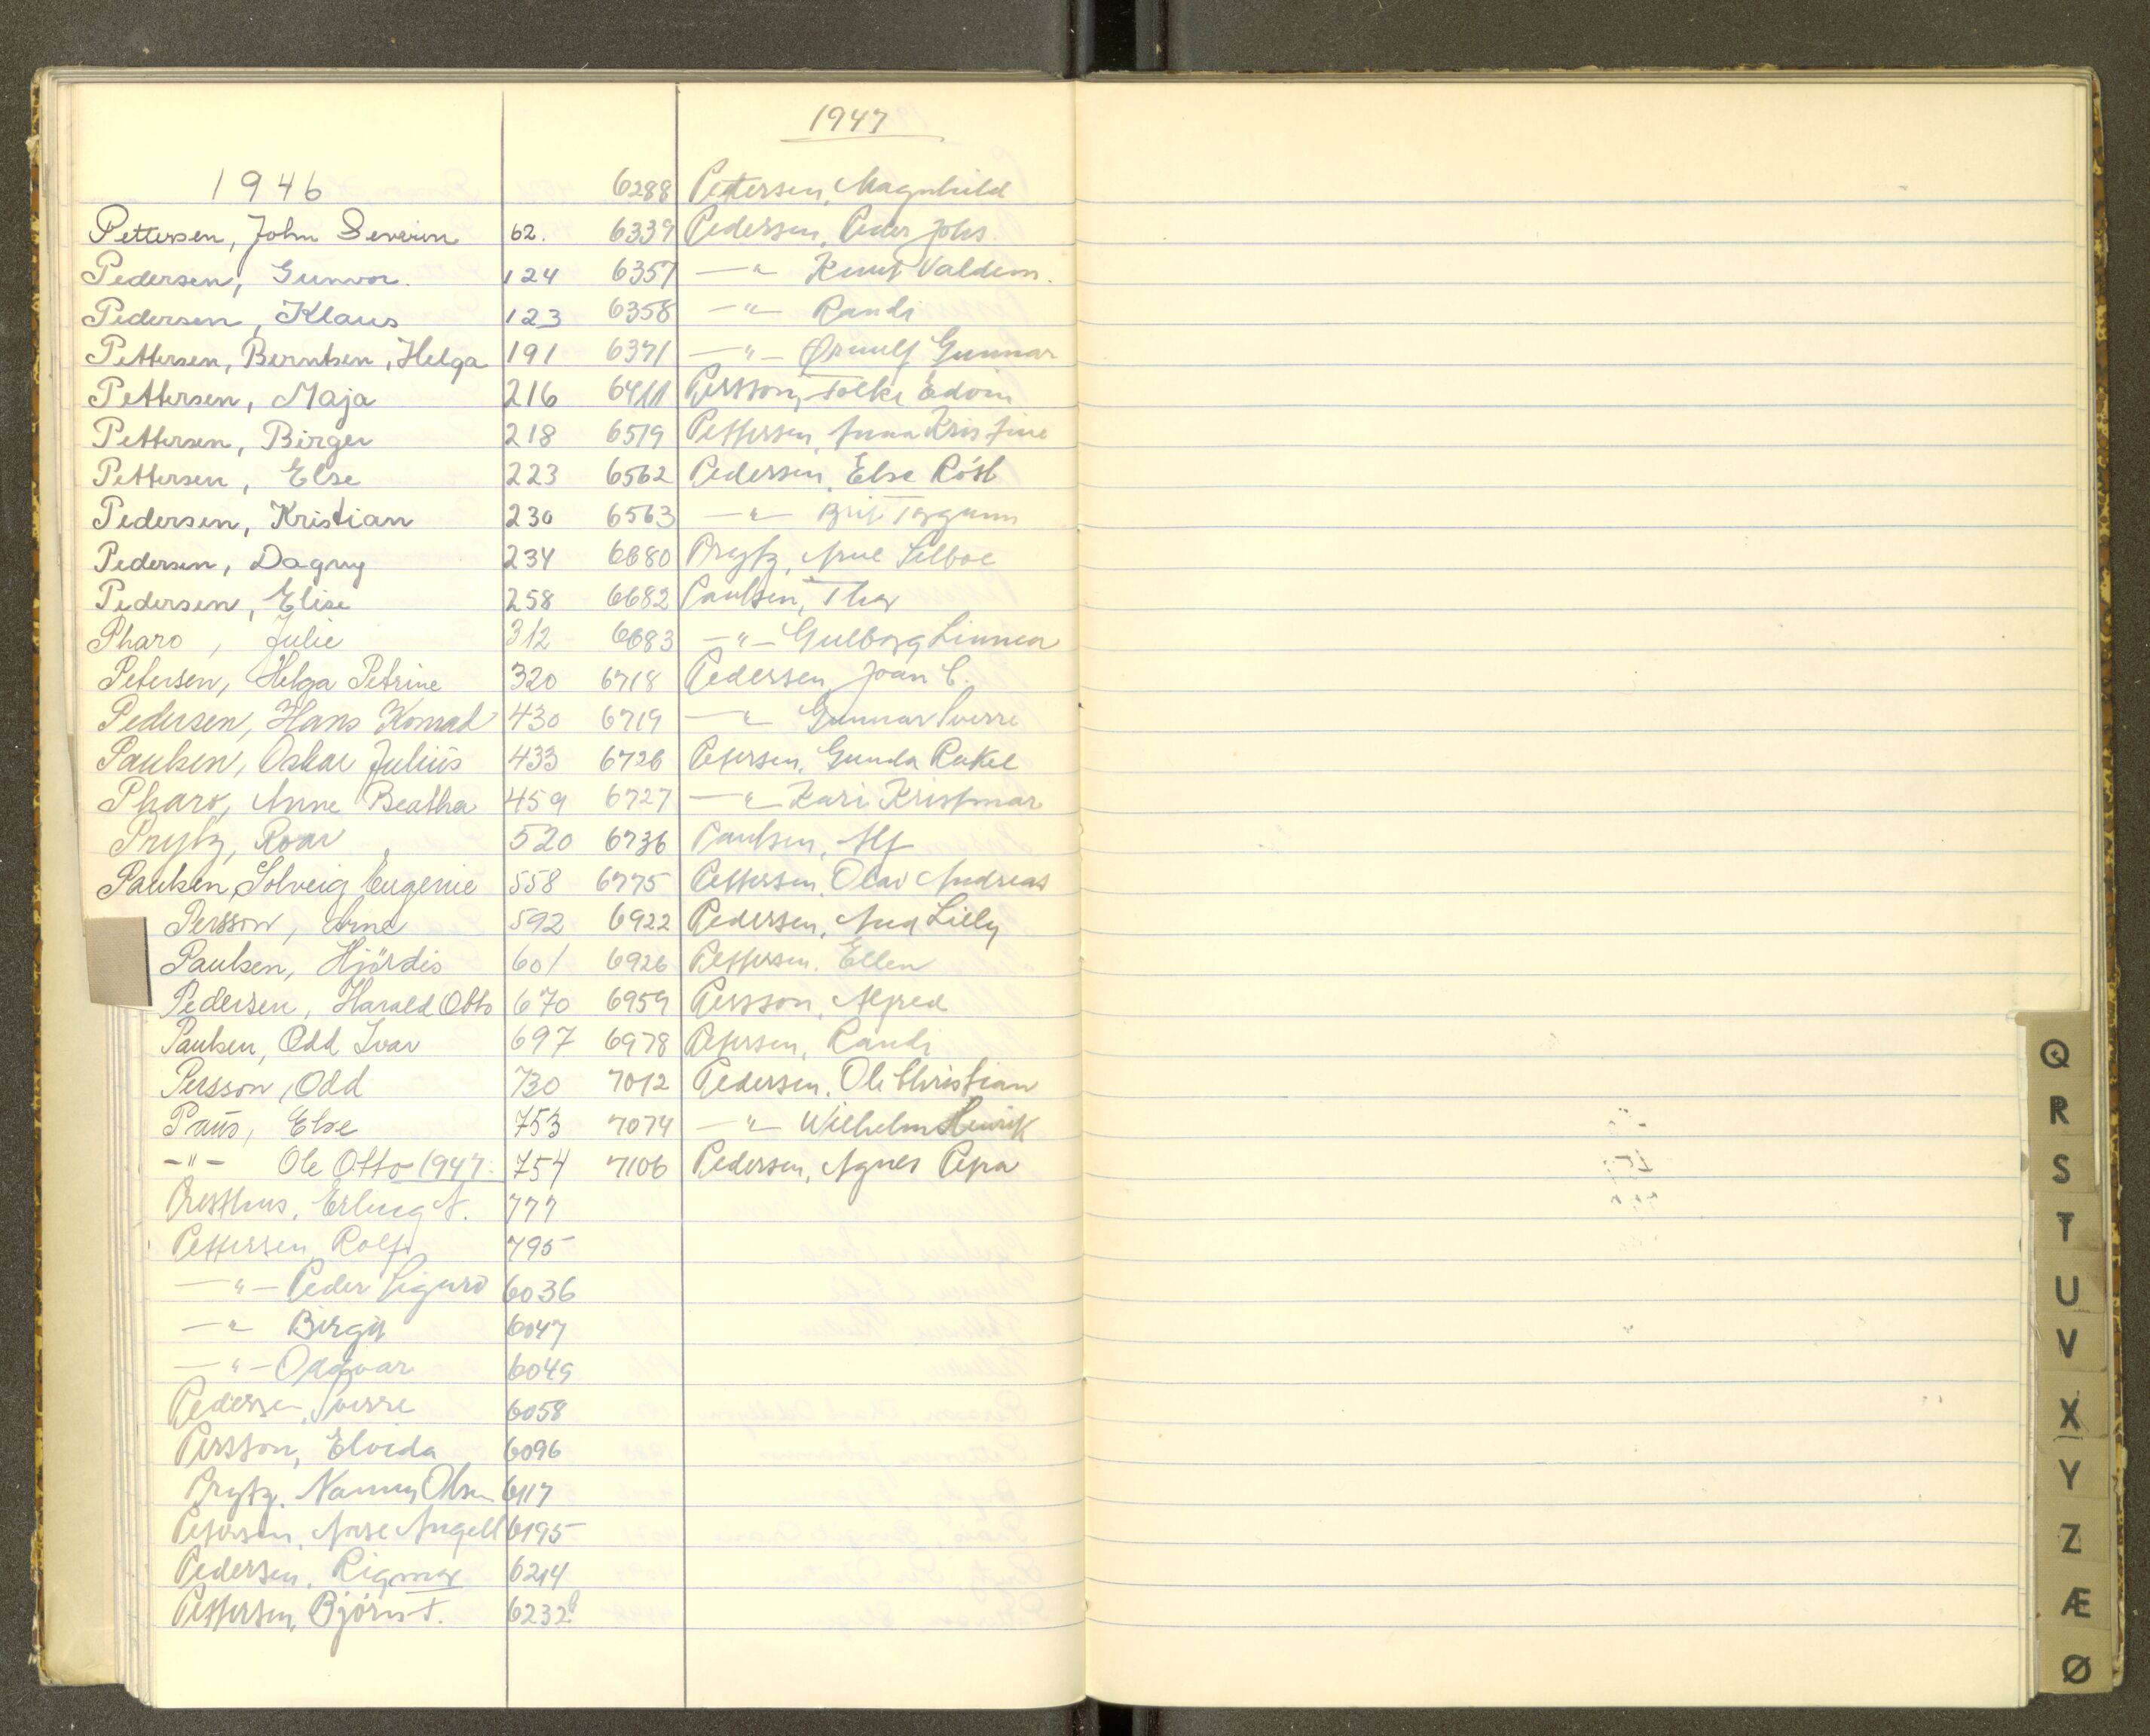 1947
1946 6288 Pettersen, Magnhild
Pettersen, John Severin 62. 6339 Pedersen, Peder Johs.
Pedersen, Gunvor. 124 6357 —"— Knut Valdem.
Pedersen, Klaus 123 6358 —"— Randi
Pettersen, Berntsen, Helga 191 6371 —"— Ørnulf Gunnar
Pettersen, Maja 216 Persson, Folke Edvin
Pettersen, Birger 218 6519 Pettersen, Anna Kristine
Pettersen, Else 223 6562 Pedersen, Else Röst
Pedersen, Kristian 230 6563 —"— Brit Torgunn
Pedersen, Dagny 234 6680 Prytz, Arne Selboe
Pedersen, Elise 258 6682 Paulsen, Thor
Pharo, Julie 312 6683 —"— Gulborg Linnea
Petersen, Helga Petrine 320 6718 Pedersen, Joan C.
Pedersen, Hans Konrad 430 6719 —"— Gunnar Sverre
Paulsen, Oskar Julius 433 6726 Petersen, Gunda Rakel
Pharo, Anne Beatha 459 6727 —"— Kari Kristmar
Prytz, Roar 520 6736 Paulsen, Alf
Paulsen, Solveig Eugenie 558 6775 Pettersen, Olav Andreas
Persson, Arne 592 6922 Pedersen, Ana Lilly
Paulsen, Hjördis 601 6926 Pettersen, Ellen
Pedersen, Harald Otto 670 6959 Persson, Alfred
Paulsen, Odd Ivar 697 6978 Petersen, Randi
Persson, Odd 730 7012 Pedersen, Ole Christian
Paus, Else 753 7074 —"— Wilhelm Henrik
—"— Ole Otto 1947. 754 7106 Pedersen, Agnes
Presthus, Erling A. 777
Pettersen, Rolf 795
—"— Peder Sigurd 6036
—"— Birgit 6047
—"— Oddvar 6049
Pedersen, Sverre 6058
Persson, Elvida 6096
Prytz, Nanny Olsen 6117
Petersen, Aase Angell 6195
Pedersen, Rigmor 6214
Pettersen, Björn T. 6232
Q
R
S
T
U
V
X
Y
Z
Æ
Ø